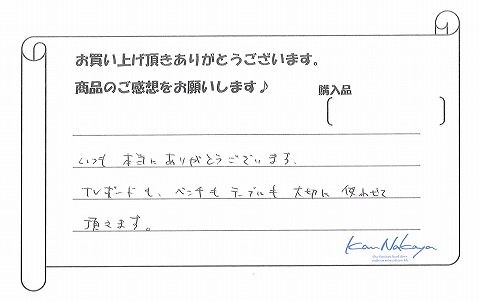 お買い上げ頂きありがとうございます。
商品のご感想をお願いします♪
購入品
いつも 本当に ありがとうございます.
TVボードも、ベンチも テーブルも 大切に 使わせて
頂きます。
Kan Nakaya